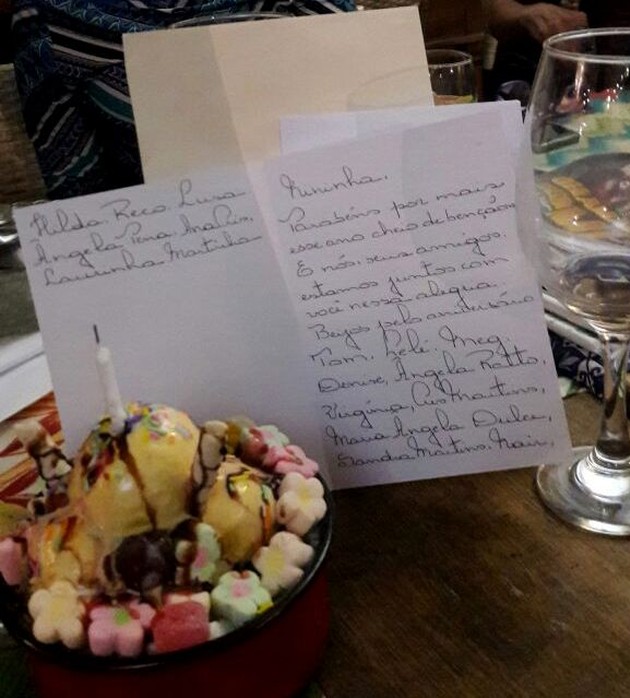 Hilda, Reco, Lusa
Ângela Pena, Ana
Laurinha Martinha
Nininha,
Parabéns por mais
esse ano cheio de bençãos
E nós, seus amigos,
estamos juntos com
você nessa alegria.
Beijos pelo aniversário
Tom, Lelé, Meg,
Denise, Ângela Ratto,
Virgínia, Martins,
Maria Ângela Dulce,
Sandra Martins, Nair,